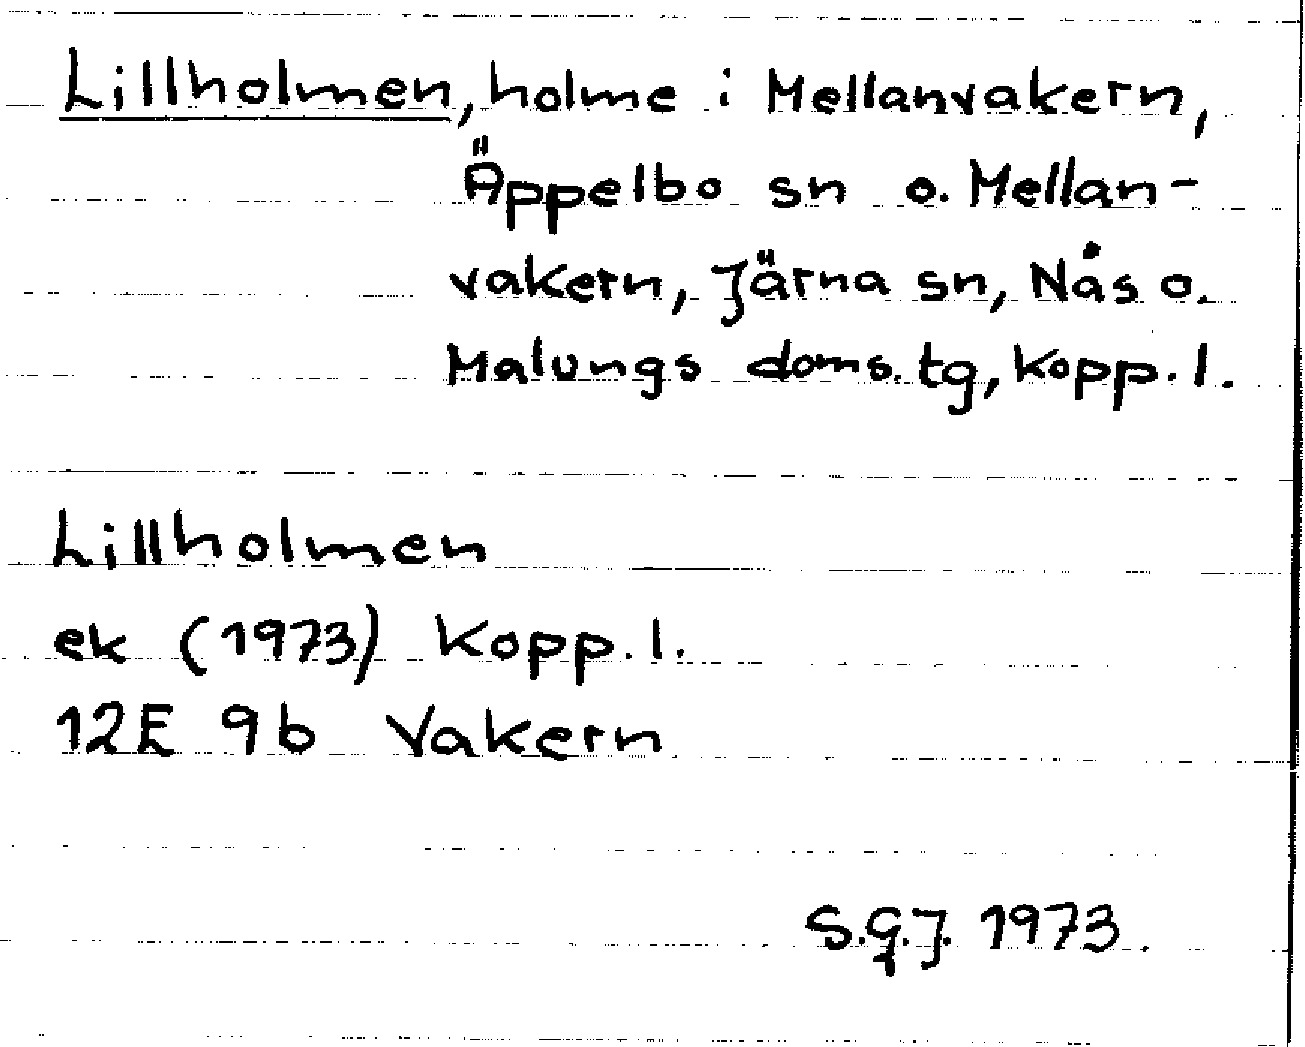 Lillholmen, holme i Mellanvakern,
Äppelbo sn o. Mellan-
vakern, Järna sn, Nås o.
Malungs doms. tg, Kopp. l.
Lillholmen
ek (1973) Kopp. l.
12E 9b Vakern
S.G.J. 1973.